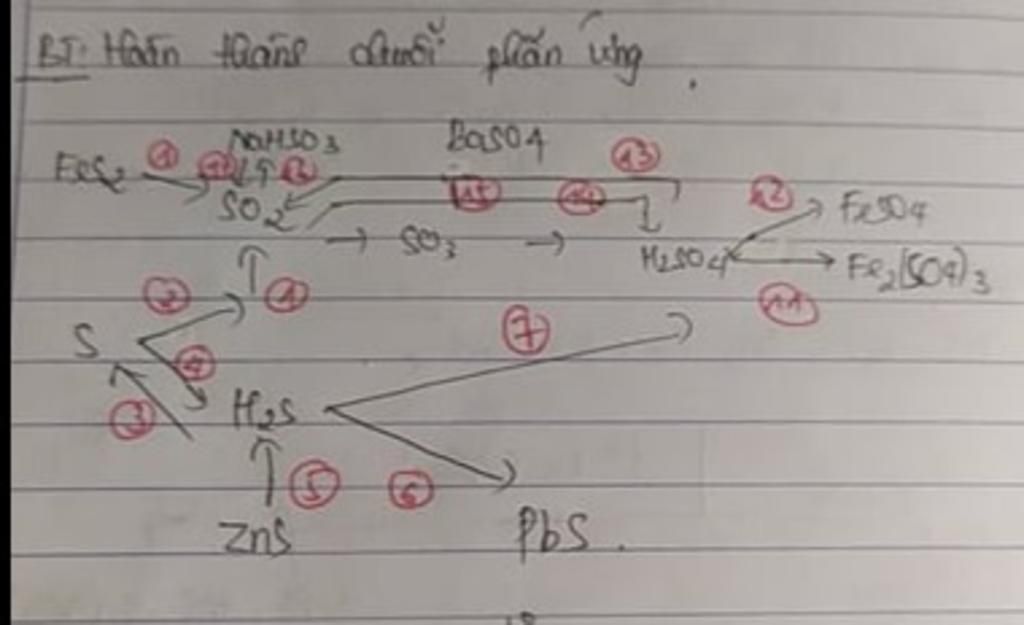 BT: Hoàn thành chuỗi phản ứng.
NaHSO3 BaSO4 13
FeS2 1 SO2 15 14 12 FeSO4
SO3 H2SO4 Fe2(SO4)3
2 1 11
S 4 7
3 H2S
5 6
ZnS PbS.